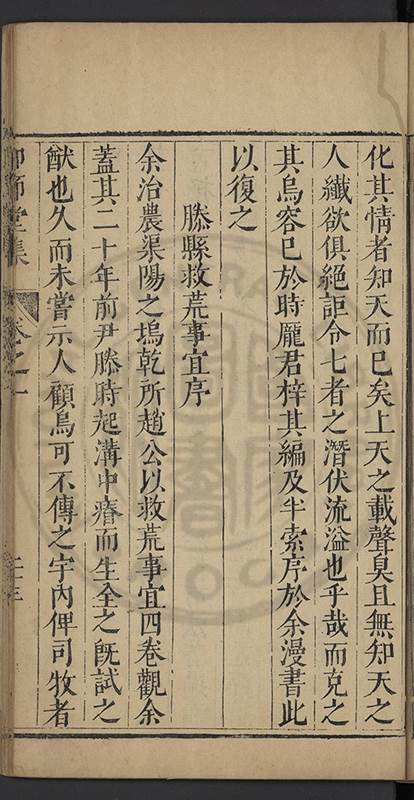 化其情者知天而已矣上天之載聲臭且無知天之
人纖欲俱絕詎令七者之潛伏流溢也乎哉而克之
其烏容已於時龐君梓其編及半索序於余漫書此
以復之
滕縣救荒事宜序
余治農渠陽之塢乾所趙公以救荒事宜四卷觀余
蓋其二十年前尹滕時起溝中瘠而生全之既試之
猷也久而未嘗示人顧烏可不傳之宇內俾司牧者
師堂集
卷之一